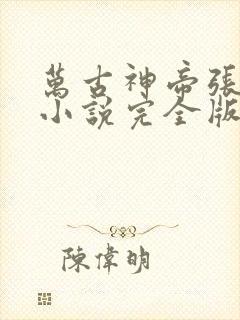 萬古神帝張
小說完全版
陳偉明